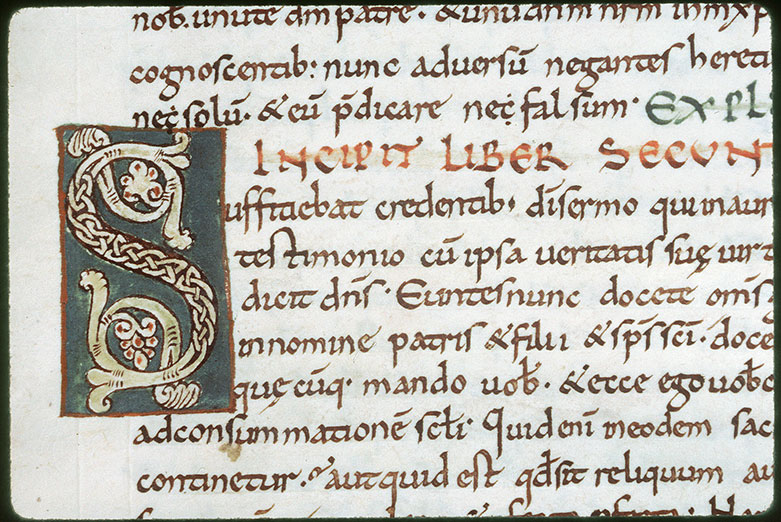 nob̄. unūte dm̄ patrē. & unū dn̄m nr̄m ih̄m xp̄
cognoscentib: nunc adversū negantes hereti
neq; solū. & eū p̄dicare neq; falsum. EXPL
INCIPIT LIBER SECUN
Suffitiebat credentib; di sermo qui in aur
testimonio cū ipsa veritatis suę virt
dicit dn̄s. Euntes nunc docete om̄s
in nomine patris & filii & sp̄s sc̄i. doce
quęcūq; mando vob̄. & ecce ego vob̄c
ad consummationē sc̄li. Quid enī in eodem sac
continetur. aut quid est qd̄ sit reliquum au